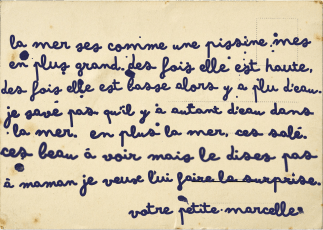 la mer ses comme une pissine mes
en plus grand. des fois elle est haute,
des fois elle est basse alors y a plu d'eau.
je savé pas qu'il y a autant d'eau dans
la mer. en plus la mer, ces salé.
ces beau à voir mais le dises pas
à maman je veux l'ui faire la surprise.
votre petite marcelle